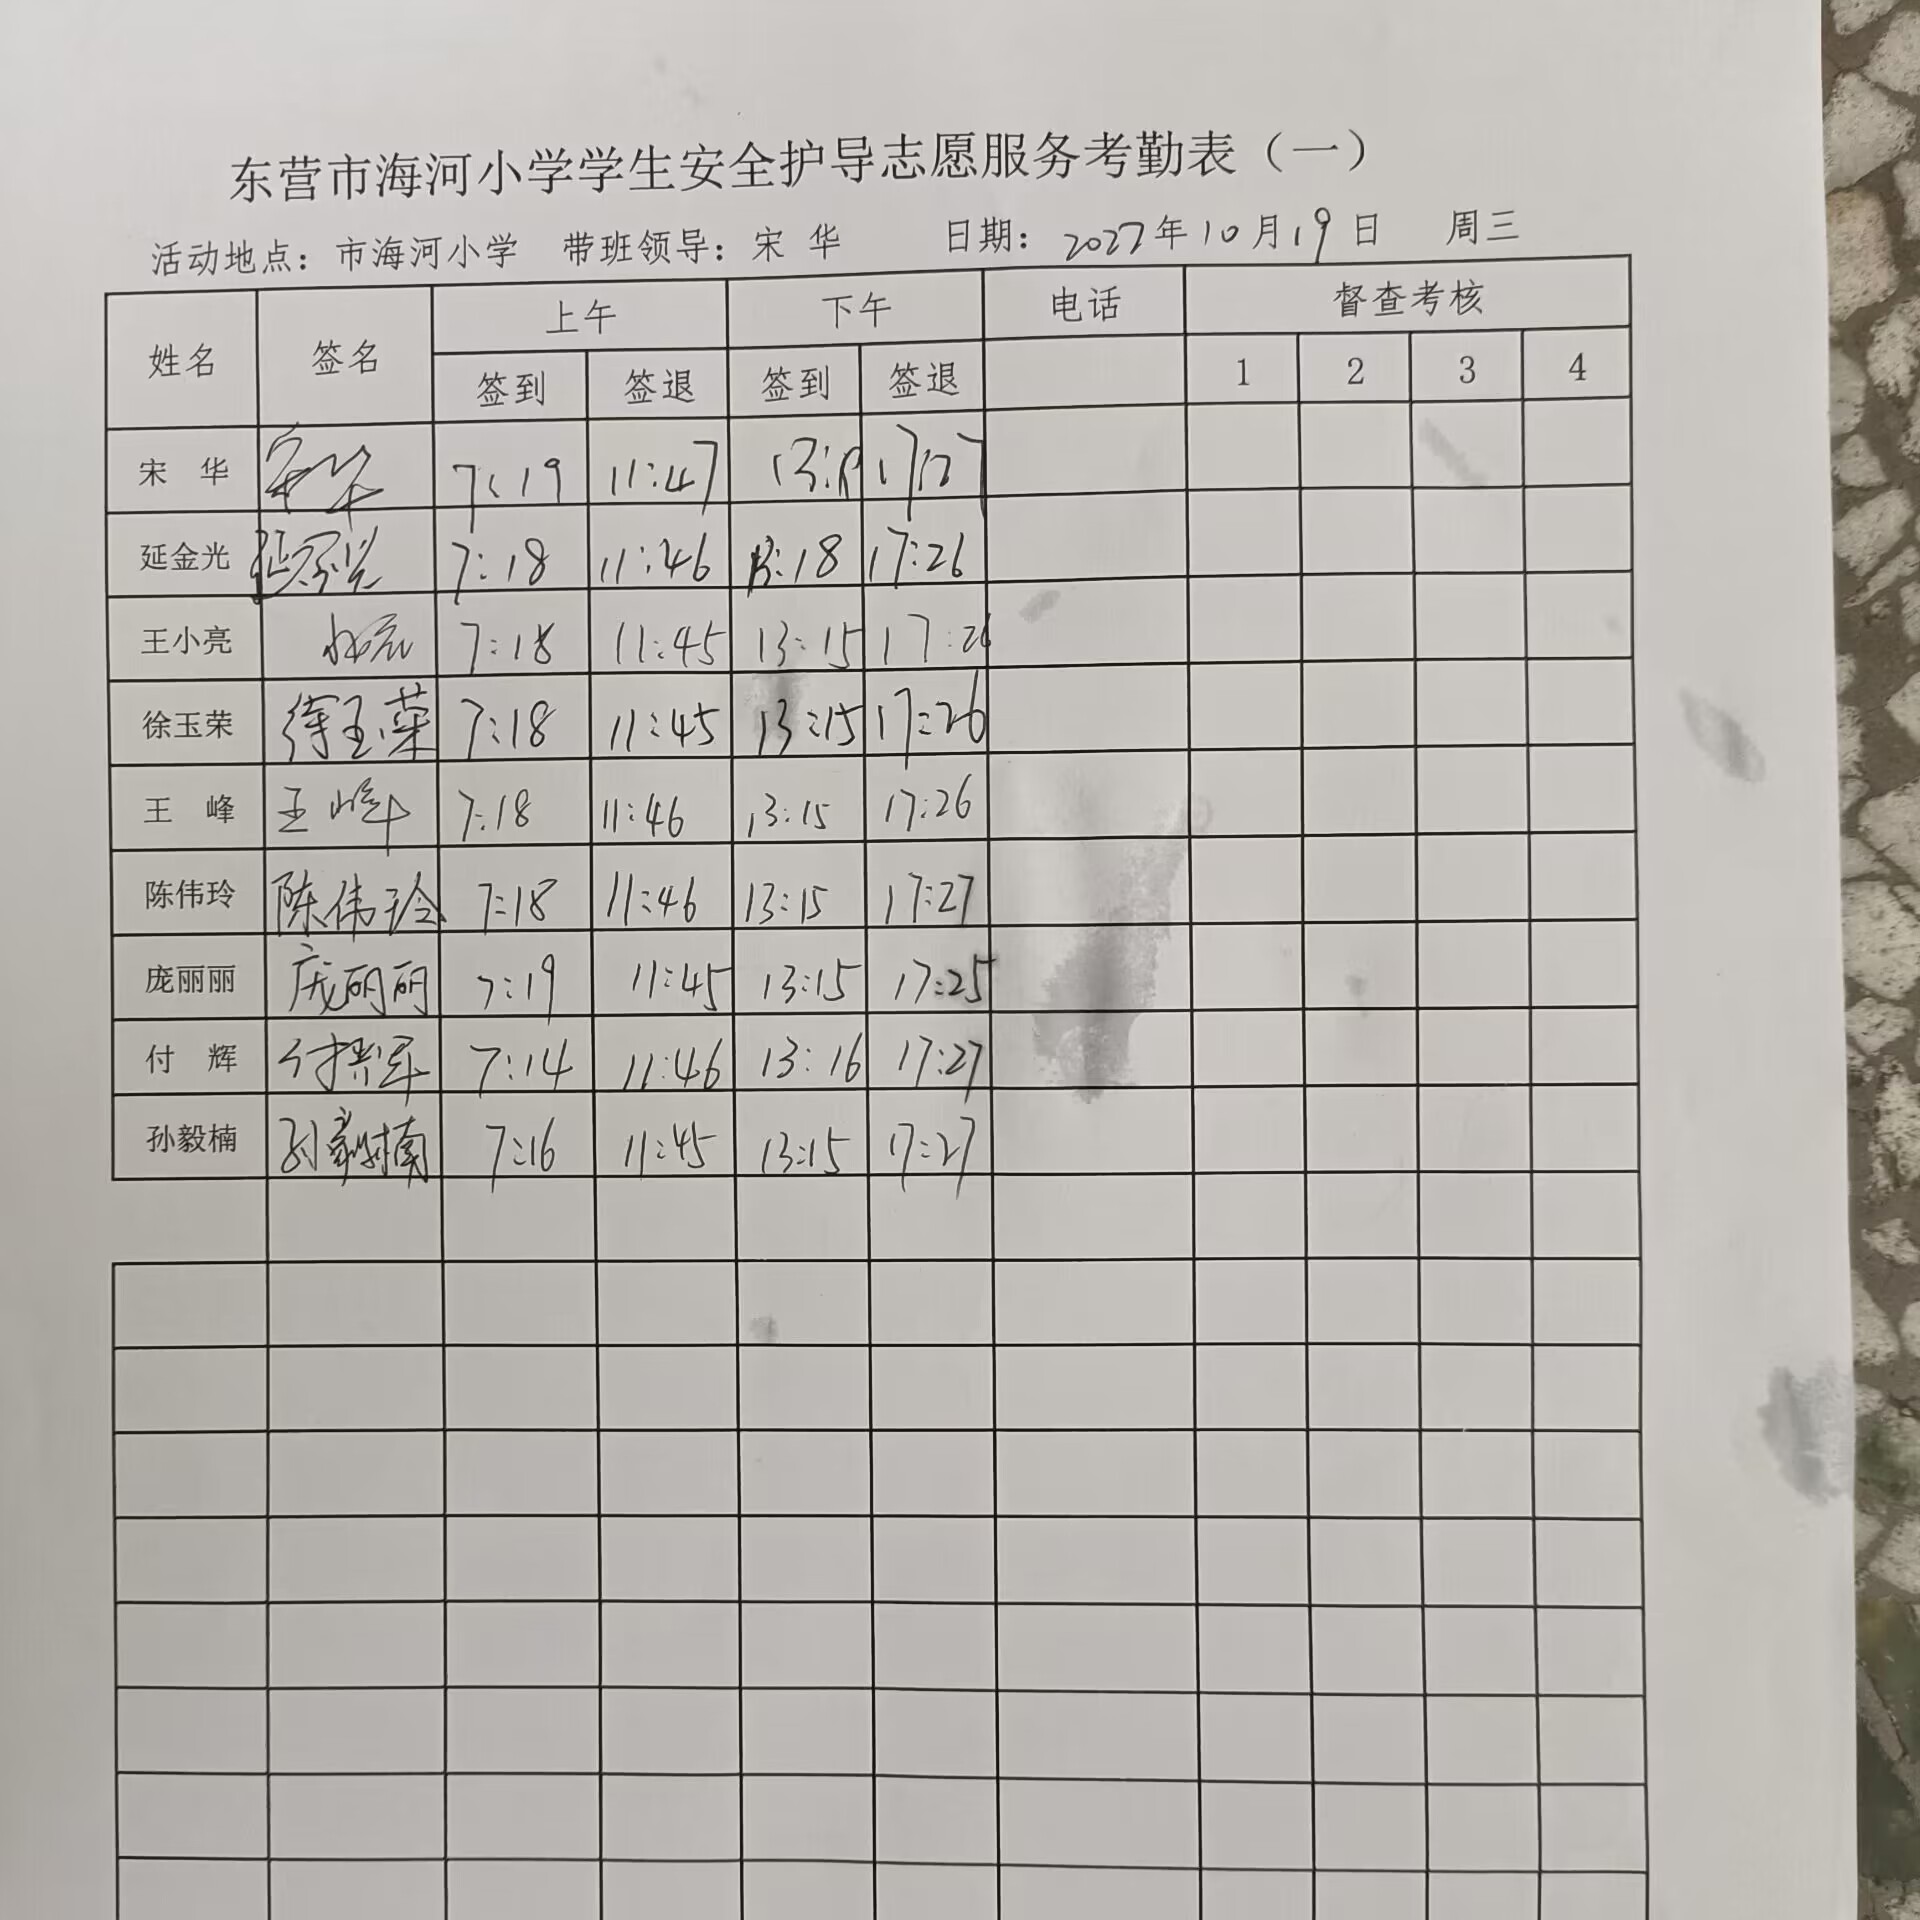 东营市海河小学学生安全护导志愿服务考勤表（一）
活动地点：市海河小学 带班领导：宋 华 日期：2022年10月19日 周三
姓名 签名 上午 下午 电话 督查考核
签到 签退 签到 签退 1 2 3 4
宋 华 宋华 7:19 11:47 17:27
延金光 延金光 7:18 11:46 13:18 17:26
王小亮 7:18 11:45 13:15 17:26
徐玉荣 徐玉荣 7:18 11:45 13:15 17:26
王 峰 王峰 7:18 11:46 13:15 17:26
陈伟玲 陈伟玲 7:18 11:46 13:15 17:27
庞丽丽 庞丽丽 7:19 11:45 13:15 17:25
付 辉 付辉 7:14 11:46 13:16 17:27
孙毅楠 孙毅楠 7:16 11:45 13:15 17:27